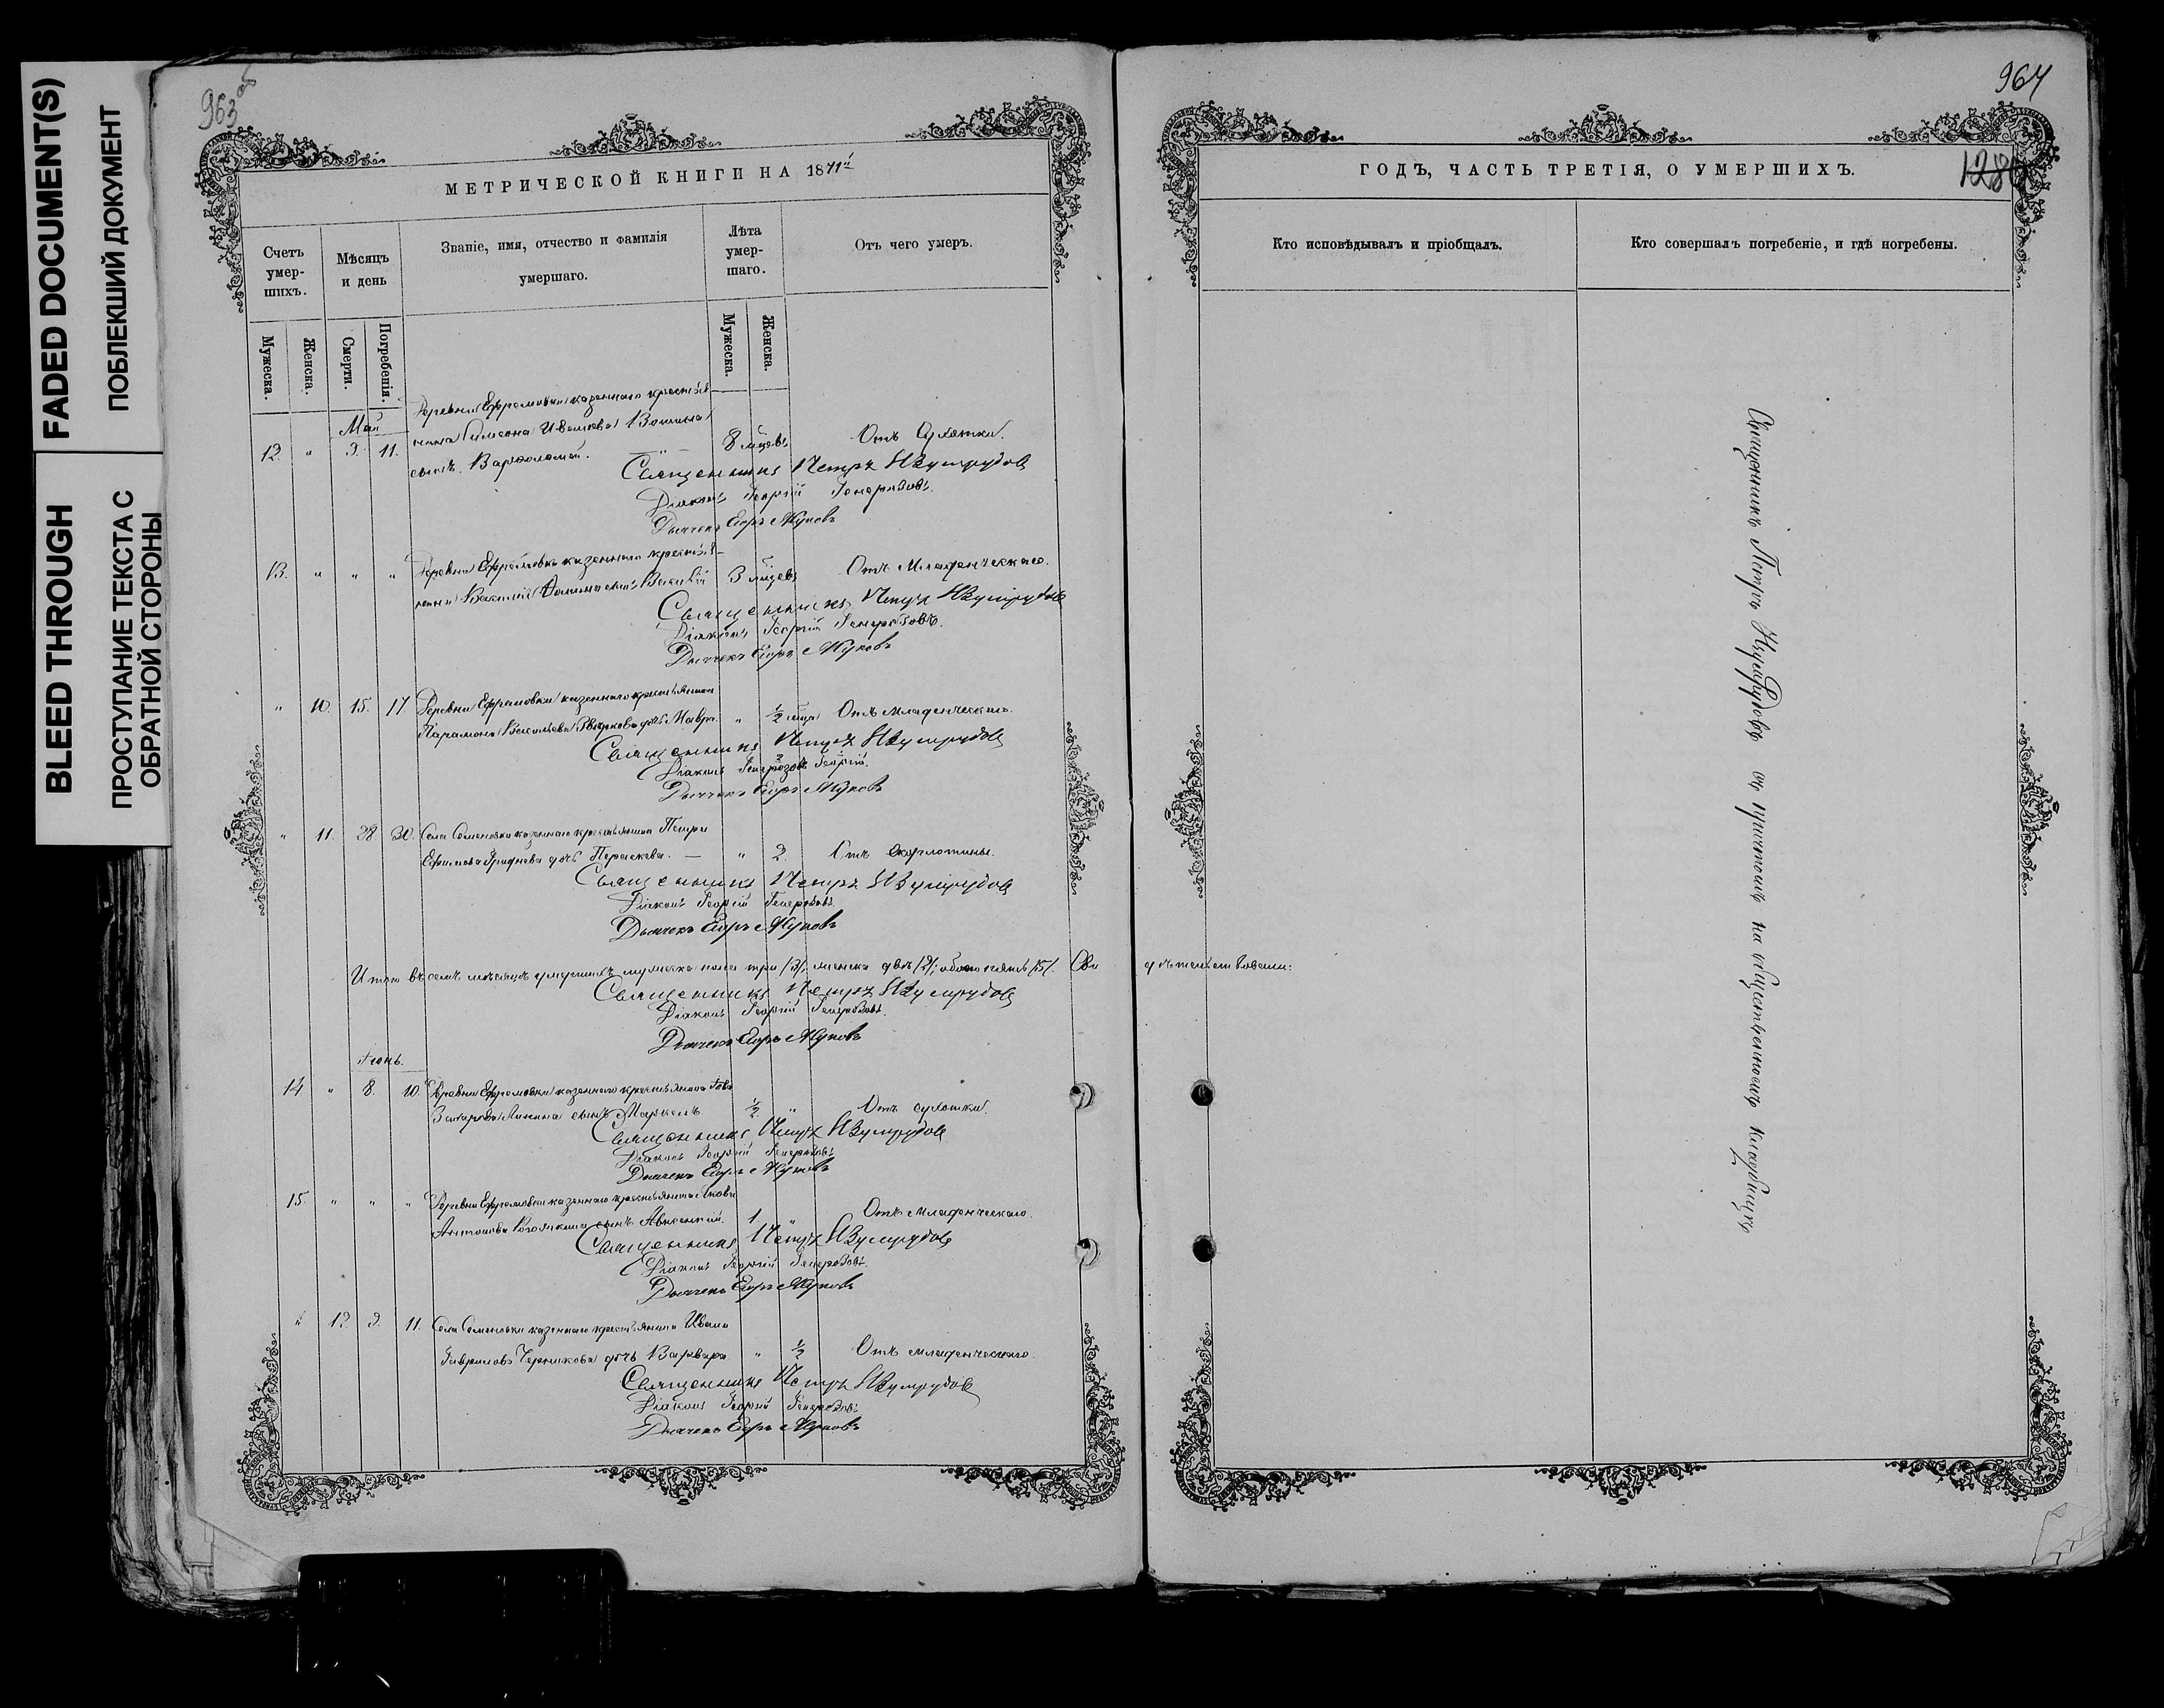 FADED DOCUMENT(S)
ПОБЛЕКШИЙ ДОКУМЕНТ
BLEED THROUGH
ПРОСТУПАНИЕ ТЕКСТА С
ОБРАТНОЙ СТОРОНЫ
963 об
МЕТРИЧЕСКОЙ КНИГИ НА 1871й
Счетъ умер-
шихъ.
Мѣсяцъ
и день
Званіе, имя, отчество и фамилія
умершаго.
Лѣта
умер-
шаго.
Отъ чего умеръ.
Мужеска.
Женска.
Смерти.
Погребенія.
Мужеска.
Женска.
Май
Деревни Ефремовки казеннаго крестья
12. " 9. 11. нина Симеона Иванова сынъ Варфоломей. 8 мѣсев. Отъ Сухотки.
Священникъ Петръ Изумрудовъ
Діаконъ Георгій Генерозовъ.
Дьячекъ Егоръ Жуковъ
13. " " " Деревни Ефремовки казеннаго крестья-
нина Василія сынъ Василій 3 мѣсев. Отъ Младенческаго.
Священникъ Петръ Изумрудовъ
Діаконъ Георгій Генерозовъ.
Дьячекъ Егоръ Жуковъ
" 10. 15. 17 Деревни Ефремовки казеннаго крестьянина
Парамона Васильева дочь Мавра. " ½ Отъ младенческаго.
Священникъ Петръ Изумрудовъ
Діаконъ Генерозовъ Георгій.
Дьячекъ Егоръ Жуковъ
" 11. 28. 30. Села Семеновки казеннаго крестьянина Петра
Ефимова Гриднева дочь Параскева. — " 2. Отъ скарлотины.
Священникъ Петръ Изумрудовъ
Діаконъ Георгій Генерозовъ.
Дьячекъ Егоръ Жуковъ
Итого въ семъ мѣсяцѣ умершихъ мужеска пола три /3/, женска двѣ /2/; обоего пять /5/. Сви
дѣтельствовали:
Священникъ Петръ Изумрудовъ
Діаконъ Георгій Генерозовъ.
Дьячекъ Егоръ Жуковъ
Іюнь.
14 " 8. 10. Деревни Ефремовки казеннаго крестьянина
Захарова сынъ Маркелъ ½ " Отъ сухотки.
Священникъ Петръ Изумрудовъ
Діаконъ Георгій Генерозовъ.
Дьячекъ Егоръ Жуковъ
15. " " " Деревни Ефремовки казеннаго крестьянина Якова
Антонова сынъ Авксентій. 1. " Отъ Младенческаго.
Священникъ Петръ Изумрудовъ
Діаконъ Георгій Генерозовъ.
Дьячекъ Егоръ Жуковъ
" 12. 9. 11. Села Семеновки казеннаго крестьянина Ивана
Гаврилова Черникова дочь Варвара " ½ Отъ младенческаго.
Священникъ Петръ Изумрудовъ
Діаконъ Георгій Генерозовъ
Дьячекъ Егоръ Жуковъ
964
128
ГОДЪ, ЧАСТЬ ТРЕТІЯ, О УМЕРШИХЪ.
Кто исповѣдывалъ и пріобщалъ.
Кто совершалъ погребеніе, и гдѣ погребены.
Священникъ Петръ Изумрудовъ съ причтомъ на общественномъ кладбищѣ